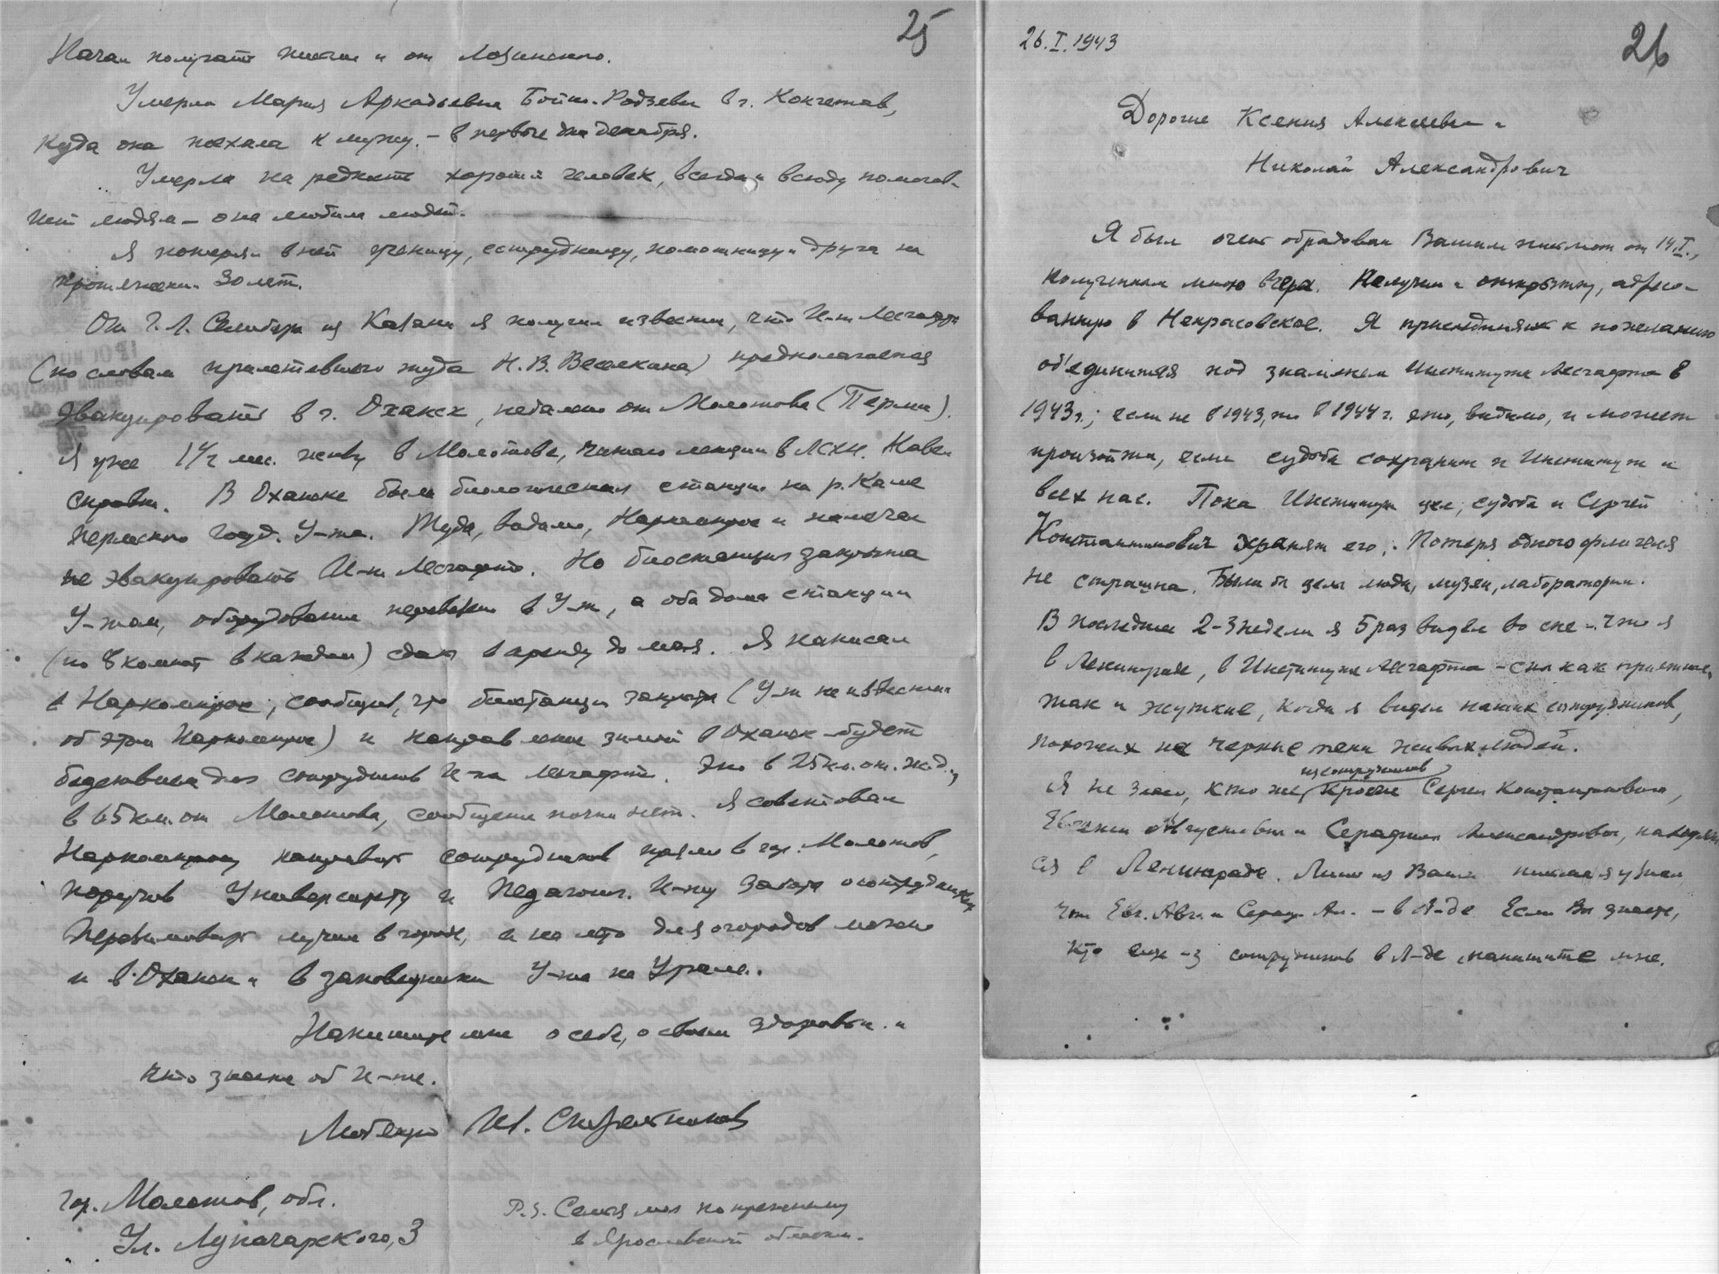 25
Начал получать письма и от Лозинского.
Умерла Мария Аркадьевна Бойно-Родзевич в г. Кокчетав,
куда она поехала к мужу, – в первые дни декабря.
Умерла на редкость хороший человек, всегда и всюду помогав-
ший людям – она любила людей.
Я потерял в ней ученицу, сотрудницу, помощницу и друга на
протяжении 30 лет.
От из Казани я получил известие, что И-т Лесгафта
(по словам прилетевшего туда Н.В. ) предполагается
эвакуировать в г. Оханск, недалеко от Молотова (Перми).
Я уже 1½ мес. живу в Молотове, читаю лекции в Навел
справки. В Оханске была биологическая станция на р. Каме
Пермского Госуд. У-та. Туда, видимо, Наркомпрос и наметил
эвакуировать И-т Лесгафта. Но биостанция закрыта
У-том, оборудование перевезено в У-т, а оба дома станции
(по 8 комнат в каждом) сданы в аренду до мая. Я написал
в Наркомпрос, сообщив, что биостанция закрыта (У-т не известил
об этом Наркомпрос) и направление зимой в Оханск будет
бедствие для сотрудников И-та Лесгафта. Это в 25 км. от ж.д.,
в 65 км. от Молотова, сообщения почти нет. Я советовал
Наркомпросу направить сотрудников прямо в гор. Молотов,
поручив Университету и Педагогич. И-ту заботу о сотрудниках
Перезимовать лучше в городе, а на лето для огородов можно
и в Оханск и в заповедники У-та на Урале.
Напишите мне о себе, о своем здоровьи и
что знаете об И-те.
Любящий
гор. Молотов, обл.
Ул. Луначарского, 3
P.S. Семья моя по прежнему
в Ярославской области.
26.I.1943
26
Дорогие Ксения Алексеевна и
Николай Александрович
Я был очень обрадован Вашим письмом от 14.I.,
полученным мною вчера. Получил и открытку, адресо-
ванную в Некрасовское. Я присоединяюсь к пожеланию
об'единиться под знаменем Института Лесгафта в
1943 г.; если не в 1943, то в 1944 г. это, видимо, и может
произойти, если судьба сохранит и Институт и
всех нас. Пока Институт цел, судьба и Сергей
Константинович хранят его. Потеря одного флигеля
не страшна. Были бы целы люди, музеи, лаборатории.
В последние 2-3 недели я 5 раз видел во сне, что я
в Ленинграде, в Институте Лесгафта – сны как приятные,
так и жуткие, когда я видел наших сотрудников,
похожих на черные тени живых людей.
Я не знаю, кто же из сотрудников кроме Сергея Константиновича,
Евгении Августовны и Серафимы Александровны, находят-
ся в Ленинграде. Лишь из Ваших писем я узнал
что Евг. Авг. и Сераф. Ал. – в Л-де Если Вы знаете,
кто еще из сотрудников в Л-де, напишите мне.